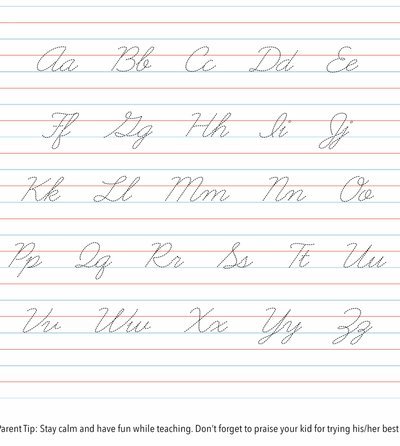 Aa Bb Cc Dd Ee
Ff Gg Hh Ii Jj
Kk Ll Mm Nn Oo
Pp Qq Rr Ss Tt Uu
Vv Ww Xx Yy Zz
Parent Tip: Stay calm and have fun while teaching. Don't forget to praise your kid for trying his/her best